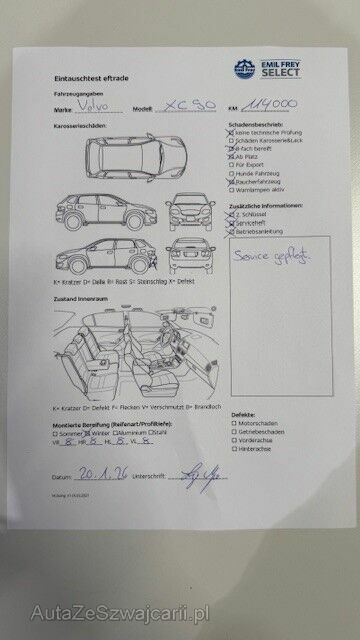 EMIL FREY
SELECT
Eintauschtest eftrade
Fahrzeugangaben
Marke: Volvo Modell: XC 90 KM: 114000
Karosserieschäden:
Schadensbeschrieb:
keine technische Prüfung
Schäden Karosserie&Lack
8-fach bereift
Ab Platz
Für Export
Hunde Fahrzeug
Raucherfahrzeug
Warnlampen aktiv
Zusätzliche Informationen:
2. Schlüssel
Serviceheft
Betriebsanleitung
Service gepflegt.
K= Kratzer D= Delle R= Rost S= Steinschlag X= Defekt
Zustand Innenraum
K= Kratzer D= Defekt F= Flecken V= Verschmutzt B= Brandloch
Montierte Bereifung (Reifenart/Profiltiefe):
Sommer Winter Aluminium Stahl
VR 8 HR 8 HL 8 VL 8
Defekte:
Motorschaden
Getriebeschaden
Vorderachse
Hinterachse
Datum: 20.1.26 Unterschrift:
AutaZeSzwajcarii.pl